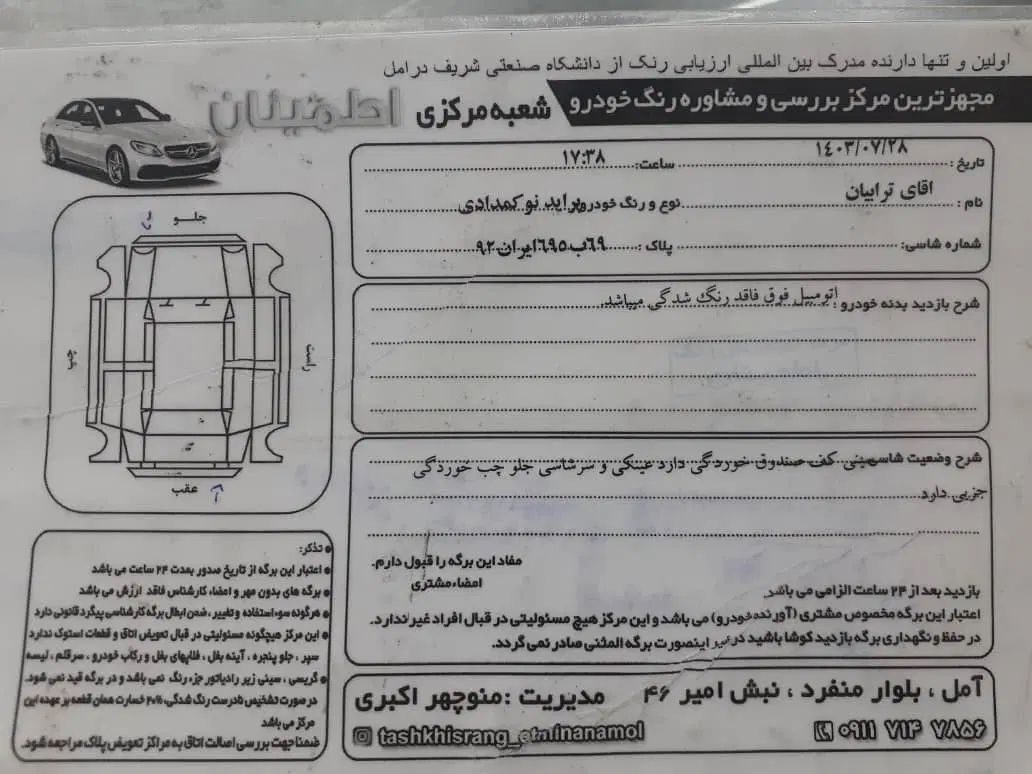 اولین و تنها دارنده مدرک بین المللی ارزیابی رنگ از دانشگاه صنعتی شریف در امل
مجهزترین مرکز بررسی و مشاوره رنگ خودرو
شعبه مرکزی
اطمینان
تاریخ : ۱٤۰۳/۰۷/۲۸ ساعت: ۱۷:۳۸
نام : اقای ترابیان نوع و رنگ خودرو: پراید نوکمدادی
شماره شاسی: پلاک : ٦٩ب٦٩٥ایران٩٢
شرح بازدید بدنه خودرو : اتومبیل فوق فاقد رنگ شدگی میباشد.
شرح وضعیت شاسی: سینی کف صندوق خوردگی دارد عینکی و سرشاسی جلو چپ خوردگی
جزیی دارد
مفاد این برگه را قبول دارم.
امضاء مشتری
بازدید بعد از ۲۴ ساعت الزامی می باشد.
اعتبار این برگه مخصوص مشتری (آورنده خودرو) می باشد و این مرکز هیچ مسئولیتی در قبال افراد غیر ندارد.
در حفظ و نگهداری برگه بازدید کوشا باشید در غیر اینصورت برگه المثنی صادر نمی گردد.
آمل ، بلوار منفرد ، نبش امیر ۴۶
مدیریت : منوچهر اکبری
۰۹۱۱ ۷۱۴ ۷۸۵۶
tashkhisrang_etminanamol
جلو
چپ
راست
عقب
تذکر:
● اعتبار این برگه از تاریخ صدور بمدت ۲۴ ساعت می باشد
● برگه های بدون مهر و امضاء کارشناس فاقد ارزش می باشد
● هرگونه سوء استفاده و تغییر ، ضمن ابطال برگه کارشناسی پیگرد قانونی دارد
● این مرکز هیچگونه مسئولیتی در قبال تعویض اتاق و قطعات استوک ندارد
سپر ، جلو پنجره ، آینه بغل ، فلاپهای بغل و رکاب خودرو ، سرقلم ، لیسه
● گریسی ، سینی زیر رادیاتور جزء رنگ نمی باشد و در برگه قید نمی شود.
در صورت تشخیص نادرست رنگ شدگی، ۲۰% خسارت همان قطعه بر عهده این
مرکز می باشد
ضمنا جهت بررسی اصالت اتاق به مراکز تعویض پلاک مراجعه شود.